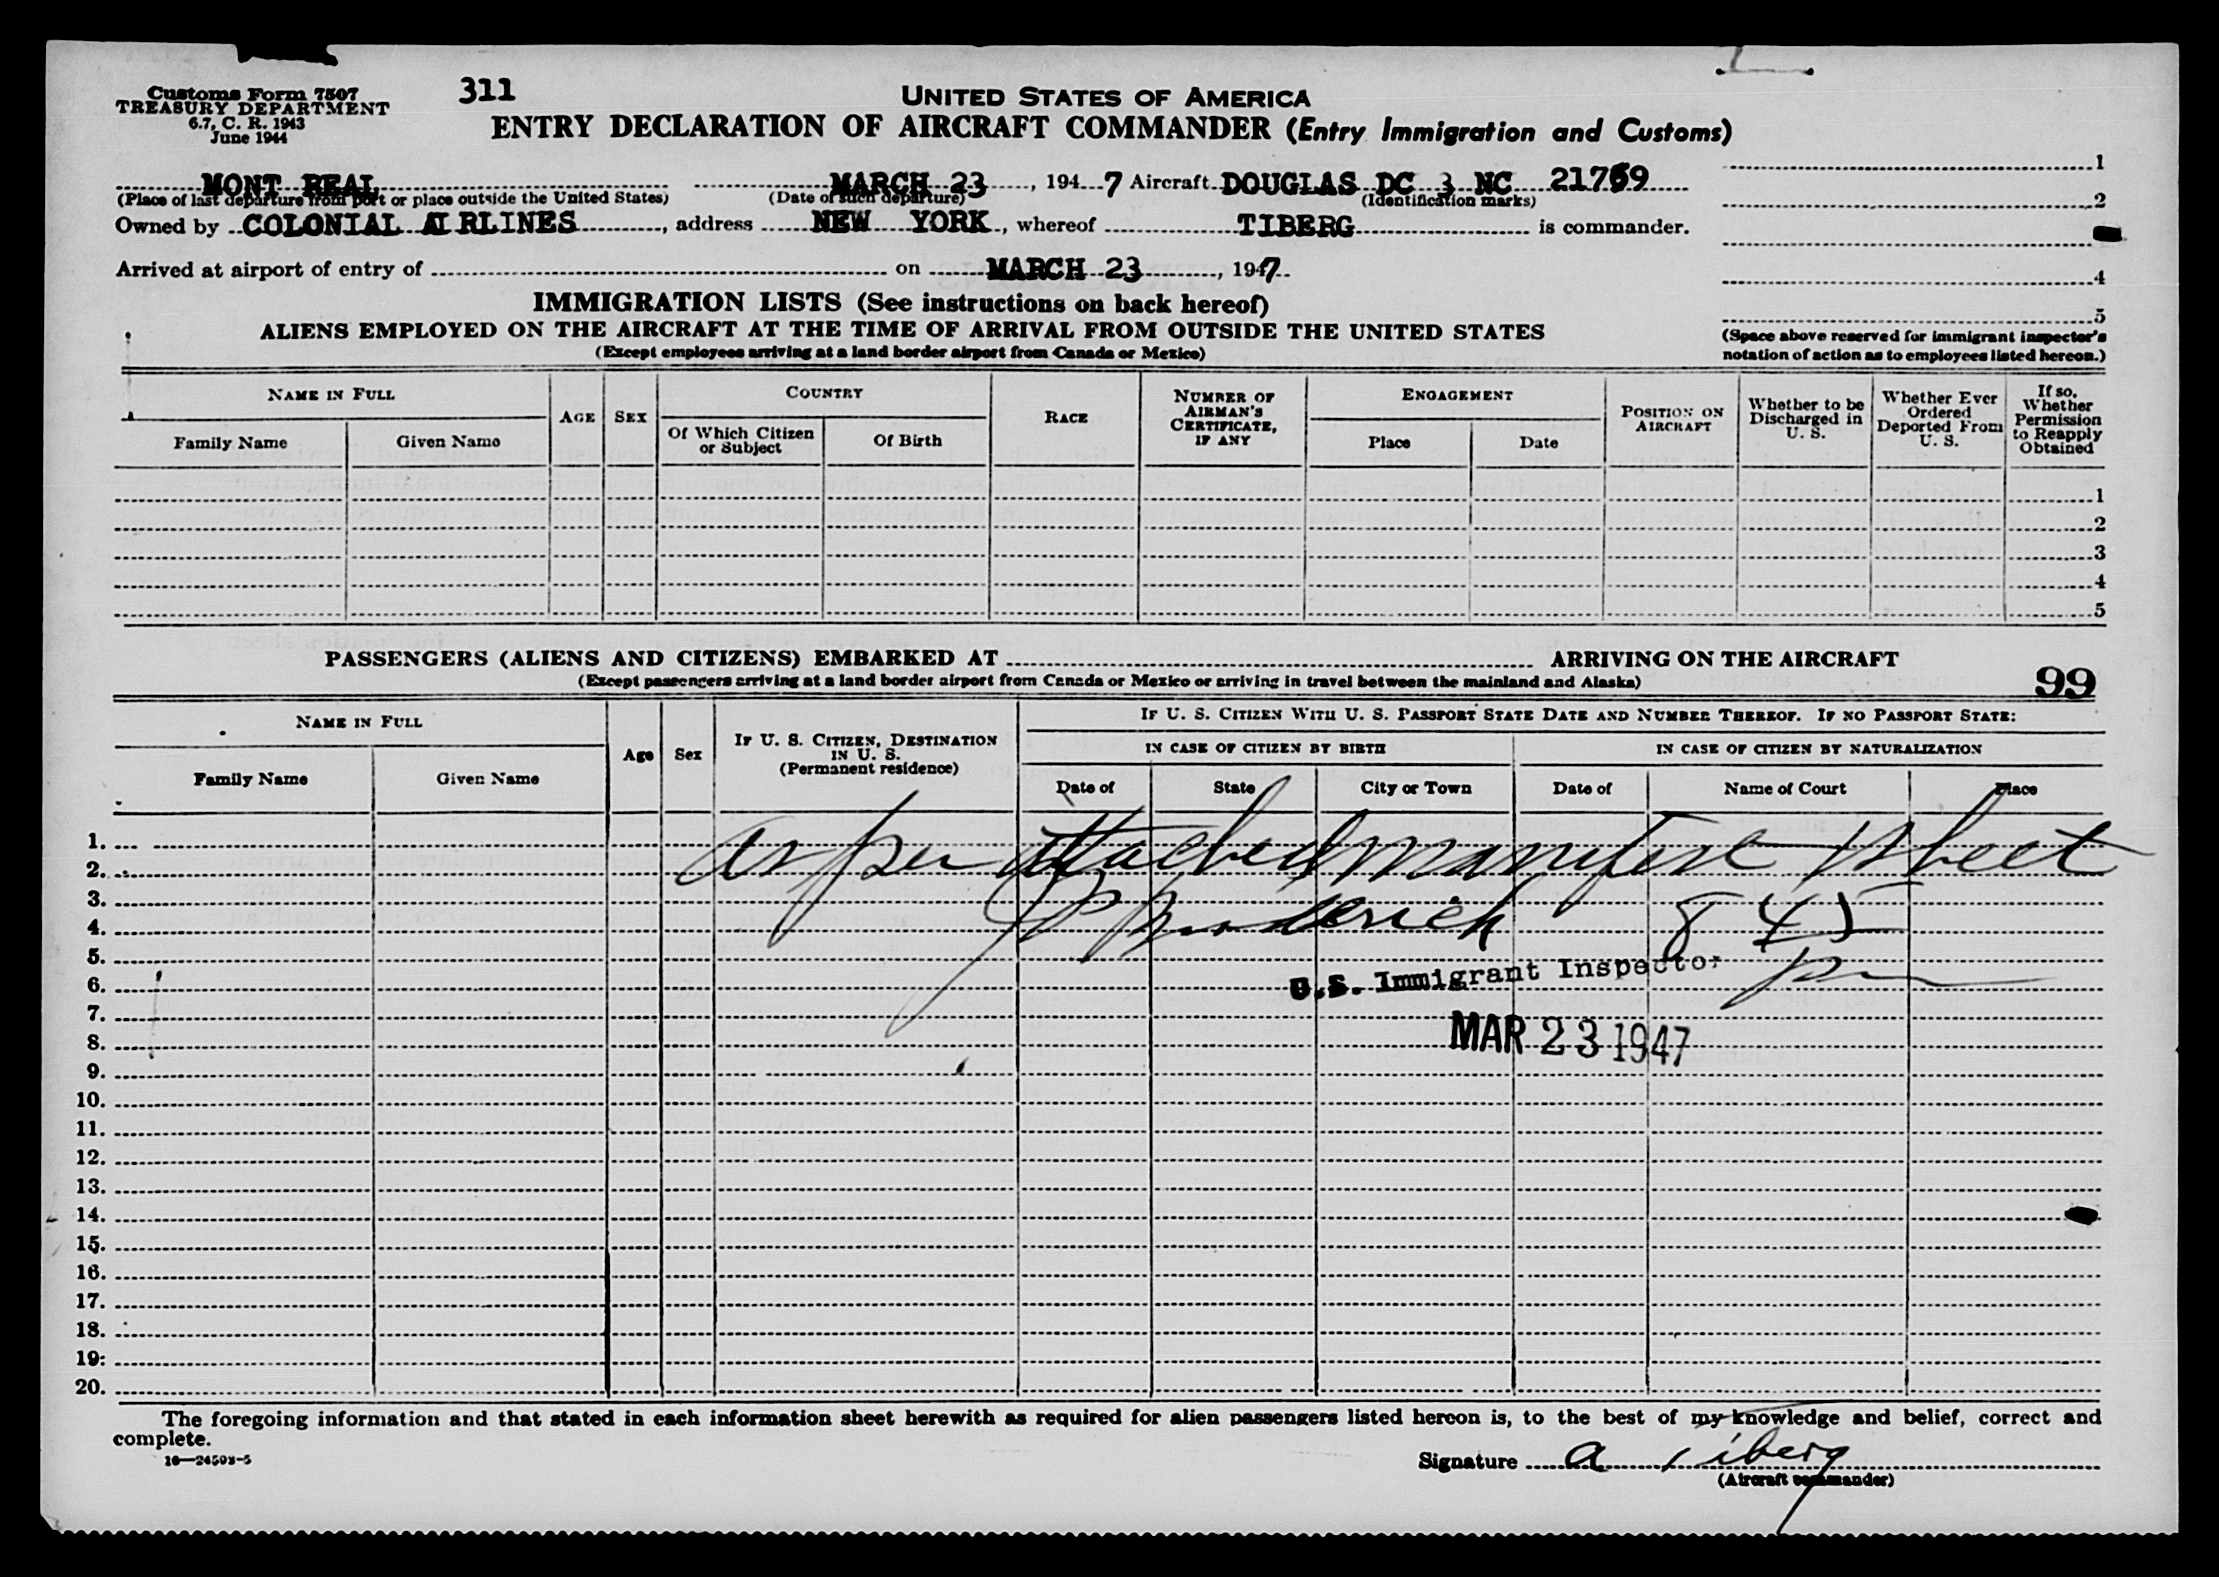 Customs Form 7507
TREASURY DEPARTMENT
6.7, C. R. 1943
June 1944
311
UNITED STATES OF AMERICA
ENTRY DECLARATION OF AIRCRAFT COMMANDER (Entry Immigration and Customs)
MONT REAL MARCH 23, 1947 Aircraft DOUGLAS DC 3 NC
(Place of last departure from port or place outside the United States) (Date of such departure) (Identification marks)
Owned by COLONIAL AIRLINES, address NEW YORK, whereof TIBERG is commander.
Arrived at airport of entry of on MARCH 23, 1947
1
2
4
5
(Space above reserved for immigrant inspector's
notation of action as to employees listed hereon.)
IMMIGRATION LISTS (See instructions on back hereof)
ALIENS EMPLOYED ON THE AIRCRAFT AT THE TIME OF ARRIVAL FROM OUTSIDE THE UNITED STATES
(Except employees arriving at a land border airport from Canada or Mexico)
NAME IN FULL
Family Name
Given Name
AGE
SEX
COUNTRY
Of Which Citizen
or Subject
Of Birth
RACE
NUMBER OF
AIRMAN'S
CERTIFICATE,
IF ANY
ENGAGEMENT
Place
Date
POSITION ON
AIRCRAFT
Whether to be
Discharged in
U. S.
Whether Ever
Ordered
Deported From
U. S.
If so,
Whether
Permission
to Reapply
Obtained
1
2
3
4
5
PASSENGERS (ALIENS AND CITIZENS) EMBARKED AT ARRIVING ON THE AIRCRAFT
(Except passengers arriving at a land border airport from Canada or Mexico or arriving in travel between the mainland and Alaska)
99
NAME IN FULL
Family Name
Given Name
Age
Sex
IF U. S. CITIZEN, DESTINATION
IN U. S.
(Permanent residence)
IF U. S. CITIZEN WITH U. S. PASSPORT STATE DATE AND NUMBER THEREOF. IF NO PASSPORT STATE:
IN CASE OF CITIZEN BY BIRTH
IN CASE OF CITIZEN BY NATURALIZATION
Date of
State
City or Town
Date of
Name of Court
Place
1.
2.
3.
4.
5.
6.
7.
8.
9.
10.
11.
12.
13.
14.
15.
16.
17.
18.
19.
20.
As per attached manifest sheet
Broderick 8 45
pm
U.S. Immigrant Inspector
MAR 23 1947
The foregoing information and that stated in each information sheet herewith as required for alien passengers listed hereon is, to the best of my knowledge and belief, correct and
complete.
16—24503-5
Signature A Tiberg
(Aircraft commander)